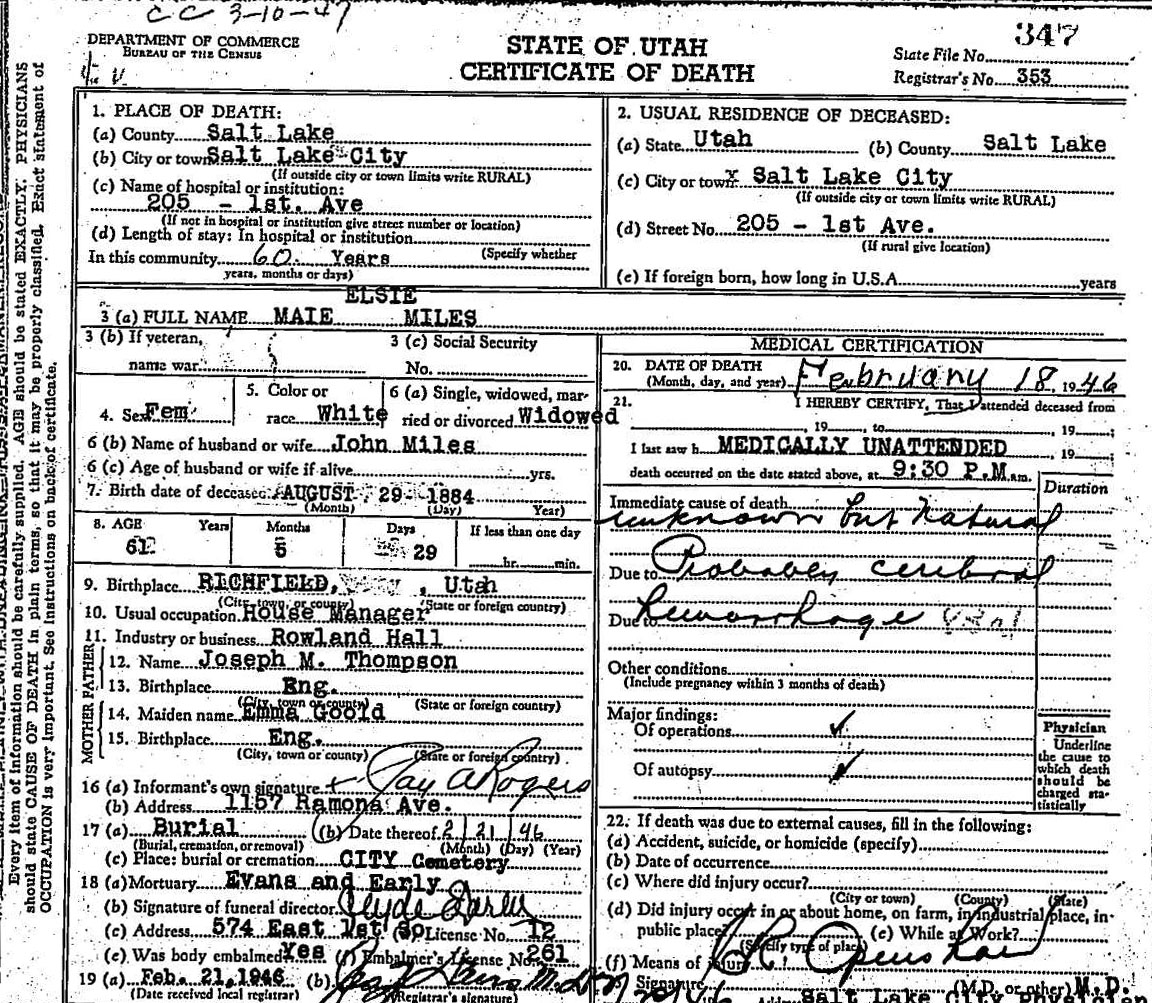 CC 3-10-47
DEPARTMENT OF COMMERCE
BUREAU OF THE CENSUS
STATE OF UTAH
CERTIFICATE OF DEATH
347
State File No.
Registrar's No. 353
Every item of information should be carefully supplied. AGE should be stated EXACTLY. PHYSICIANS
should state CAUSE OF DEATH in plain terms, so that it may be properly classified. Exact statement of
OCCUPATION is very important. See instructions on back of certificate.
1. PLACE OF DEATH:
(a) County Salt Lake
(b) City or town Salt Lake City
(If outside city or town limits write RURAL)
(c) Name of hospital or institution:
205 - 1st. Ave
(If not in hospital or institution give street number or location)
(d) Length of stay: In hospital or institution
In this community 60 Years (Specify whether
years, months or days)
2. USUAL RESIDENCE OF DECEASED:
(a) State Utah (b) County Salt Lake
(c) City or town x Salt Lake City
(If outside city or town limits write RURAL)
(d) Street No. 205 - 1st Ave.
(If rural give location)
(e) If foreign born, how long in U.S.A. years
ELSIE
3 (a) FULL NAME MAIE MILES
3 (b) If veteran, 3 (c) Social Security
name war No.
4. Sex Fem 5. Color or race White 6 (a) Single, widowed, married or divorced Widowed
6 (b) Name of husband or wife John Miles
6 (c) Age of husband or wife if alive yrs.
7. Birth date of deceased AUGUST, 29 1884
(Month) (Day) Year)
8. AGE Years Months Days If less than one day
61 5 29 hr. min.
9. Birthplace RICHFIELD, , Utah
(City, town, or county) (State or foreign country)
10. Usual occupation House Manager
11. Industry or business Rowland Hall
FATHER
12. Name Joseph M. Thompson
13. Birthplace Eng.
(City, town or county) (State or foreign country)
MOTHER
14. Maiden name Emma Goold
15. Birthplace Eng.
(City, town or county) (State or foreign country)
16 (a) Informant's own signature Rogers
(b) Address 1157 Ramona Ave.
17 (a) Burial (b) Date thereof 2 21 46
(Burial, cremation, or removal) (Month) (Day) (Year)
(c) Place: burial or cremation CITY Cemetery
18 (a) Mortuary Evans and Early
(b) Signature of funeral director Clyde Early
(c) Address 574 East 1st So License No. 12
(e) Was body embalmed Yes (f) Embalmer's License No. 261
19 (a) Feb. 21, 1946 (b)
(Date received local registrar) (Registrar's signature)
MEDICAL CERTIFICATION
20. DATE OF DEATH
(Month, day, and year) February 18, 1946
21. I HEREBY CERTIFY, That I attended deceased from
, 19 , to , 19 ;
I last saw h MEDICALLY UNATTENDED , 19 ;
death occurred on the date stated above, at 9:30 P.M. am.
Duration
Immediate cause of death
unknown but Natural
Due to Probably cerebral
Due to hemorrhage
Other conditions
(Include pregnancy within 3 months of death)
Major findings:
Of operations ✓
Of autopsy ✓
Physician
Underline
the cause to
which death
should be
charged sta-
tistically
22. If death was due to external causes, fill in the following:
(a) Accident, suicide, or homicide (specify)
(b) Date of occurrence
(c) Where did injury occur?
(City or town) (County) (State)
(d) Did injury occur in or about home, on farm, in industrial place, in
public place? (e) While at Work?
(Specify type of place)
(f) Means of injury
Signature (M.D. or other) M.D.
Salt Lake City